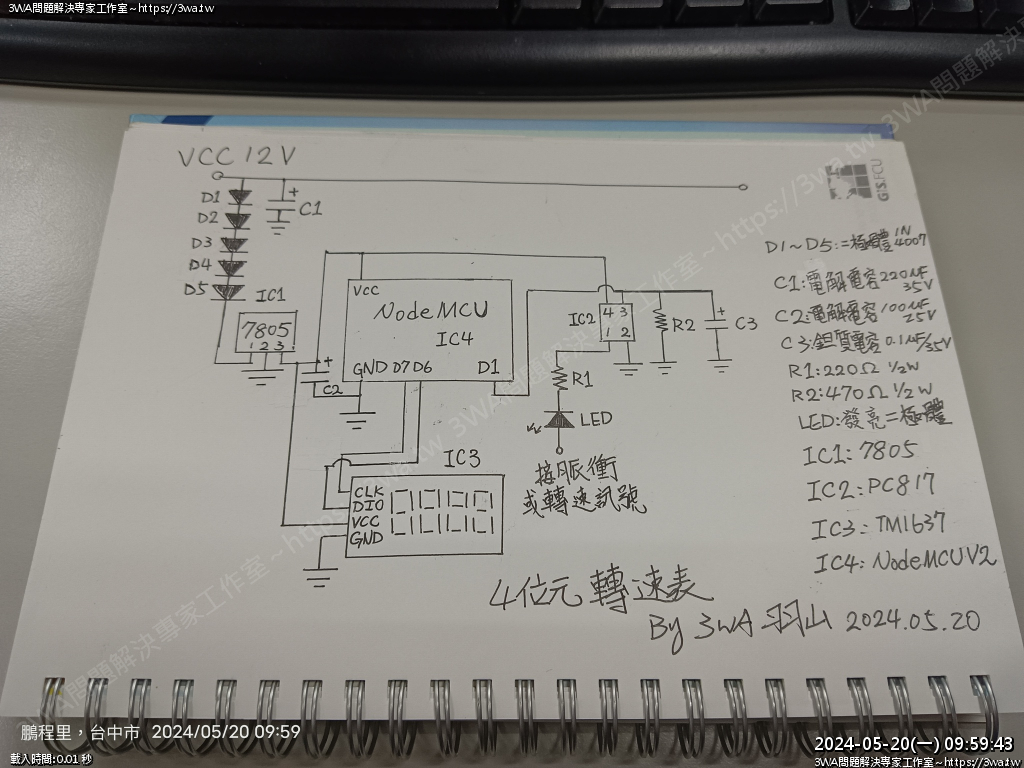 3WA問題解決專家工作室~https://3wa.tw
3WA問題解決專家工作室~https://3wa.tw
GIS.FCU
VCC 12V
D1
D2
D3
D4
D5
+
C1
IC1
7805
1 2 3
+
C2
VCC
NodeMCU
IC4
GND D7 D6 D1
IC2
4 3
1 2
R2
+
C3
R1
LED
接脈衝
或轉速訊號
IC3
CLK
DIO
VCC
GND
D1~D5:二極體 1N4007
C1:電解電容 220uF 35V
C2:電解電容 100uF 25V
C3:鉭質電容 0.1uF/35V
R1:220Ω 1/2W
R2:470Ω 1/2W
LED:發亮二極體
IC1:7805
IC2:PC817
IC3:TM1637
IC4:NodeMCUV2
4位元 轉速表
By 3WA 羽山 2024.05.20
鵬程里,台中市 2024/05/20 09:59
載入時間:0.01 秒
2024-05-20(一) 09:59:43
3WA問題解決專家工作室~https://3wa.tw